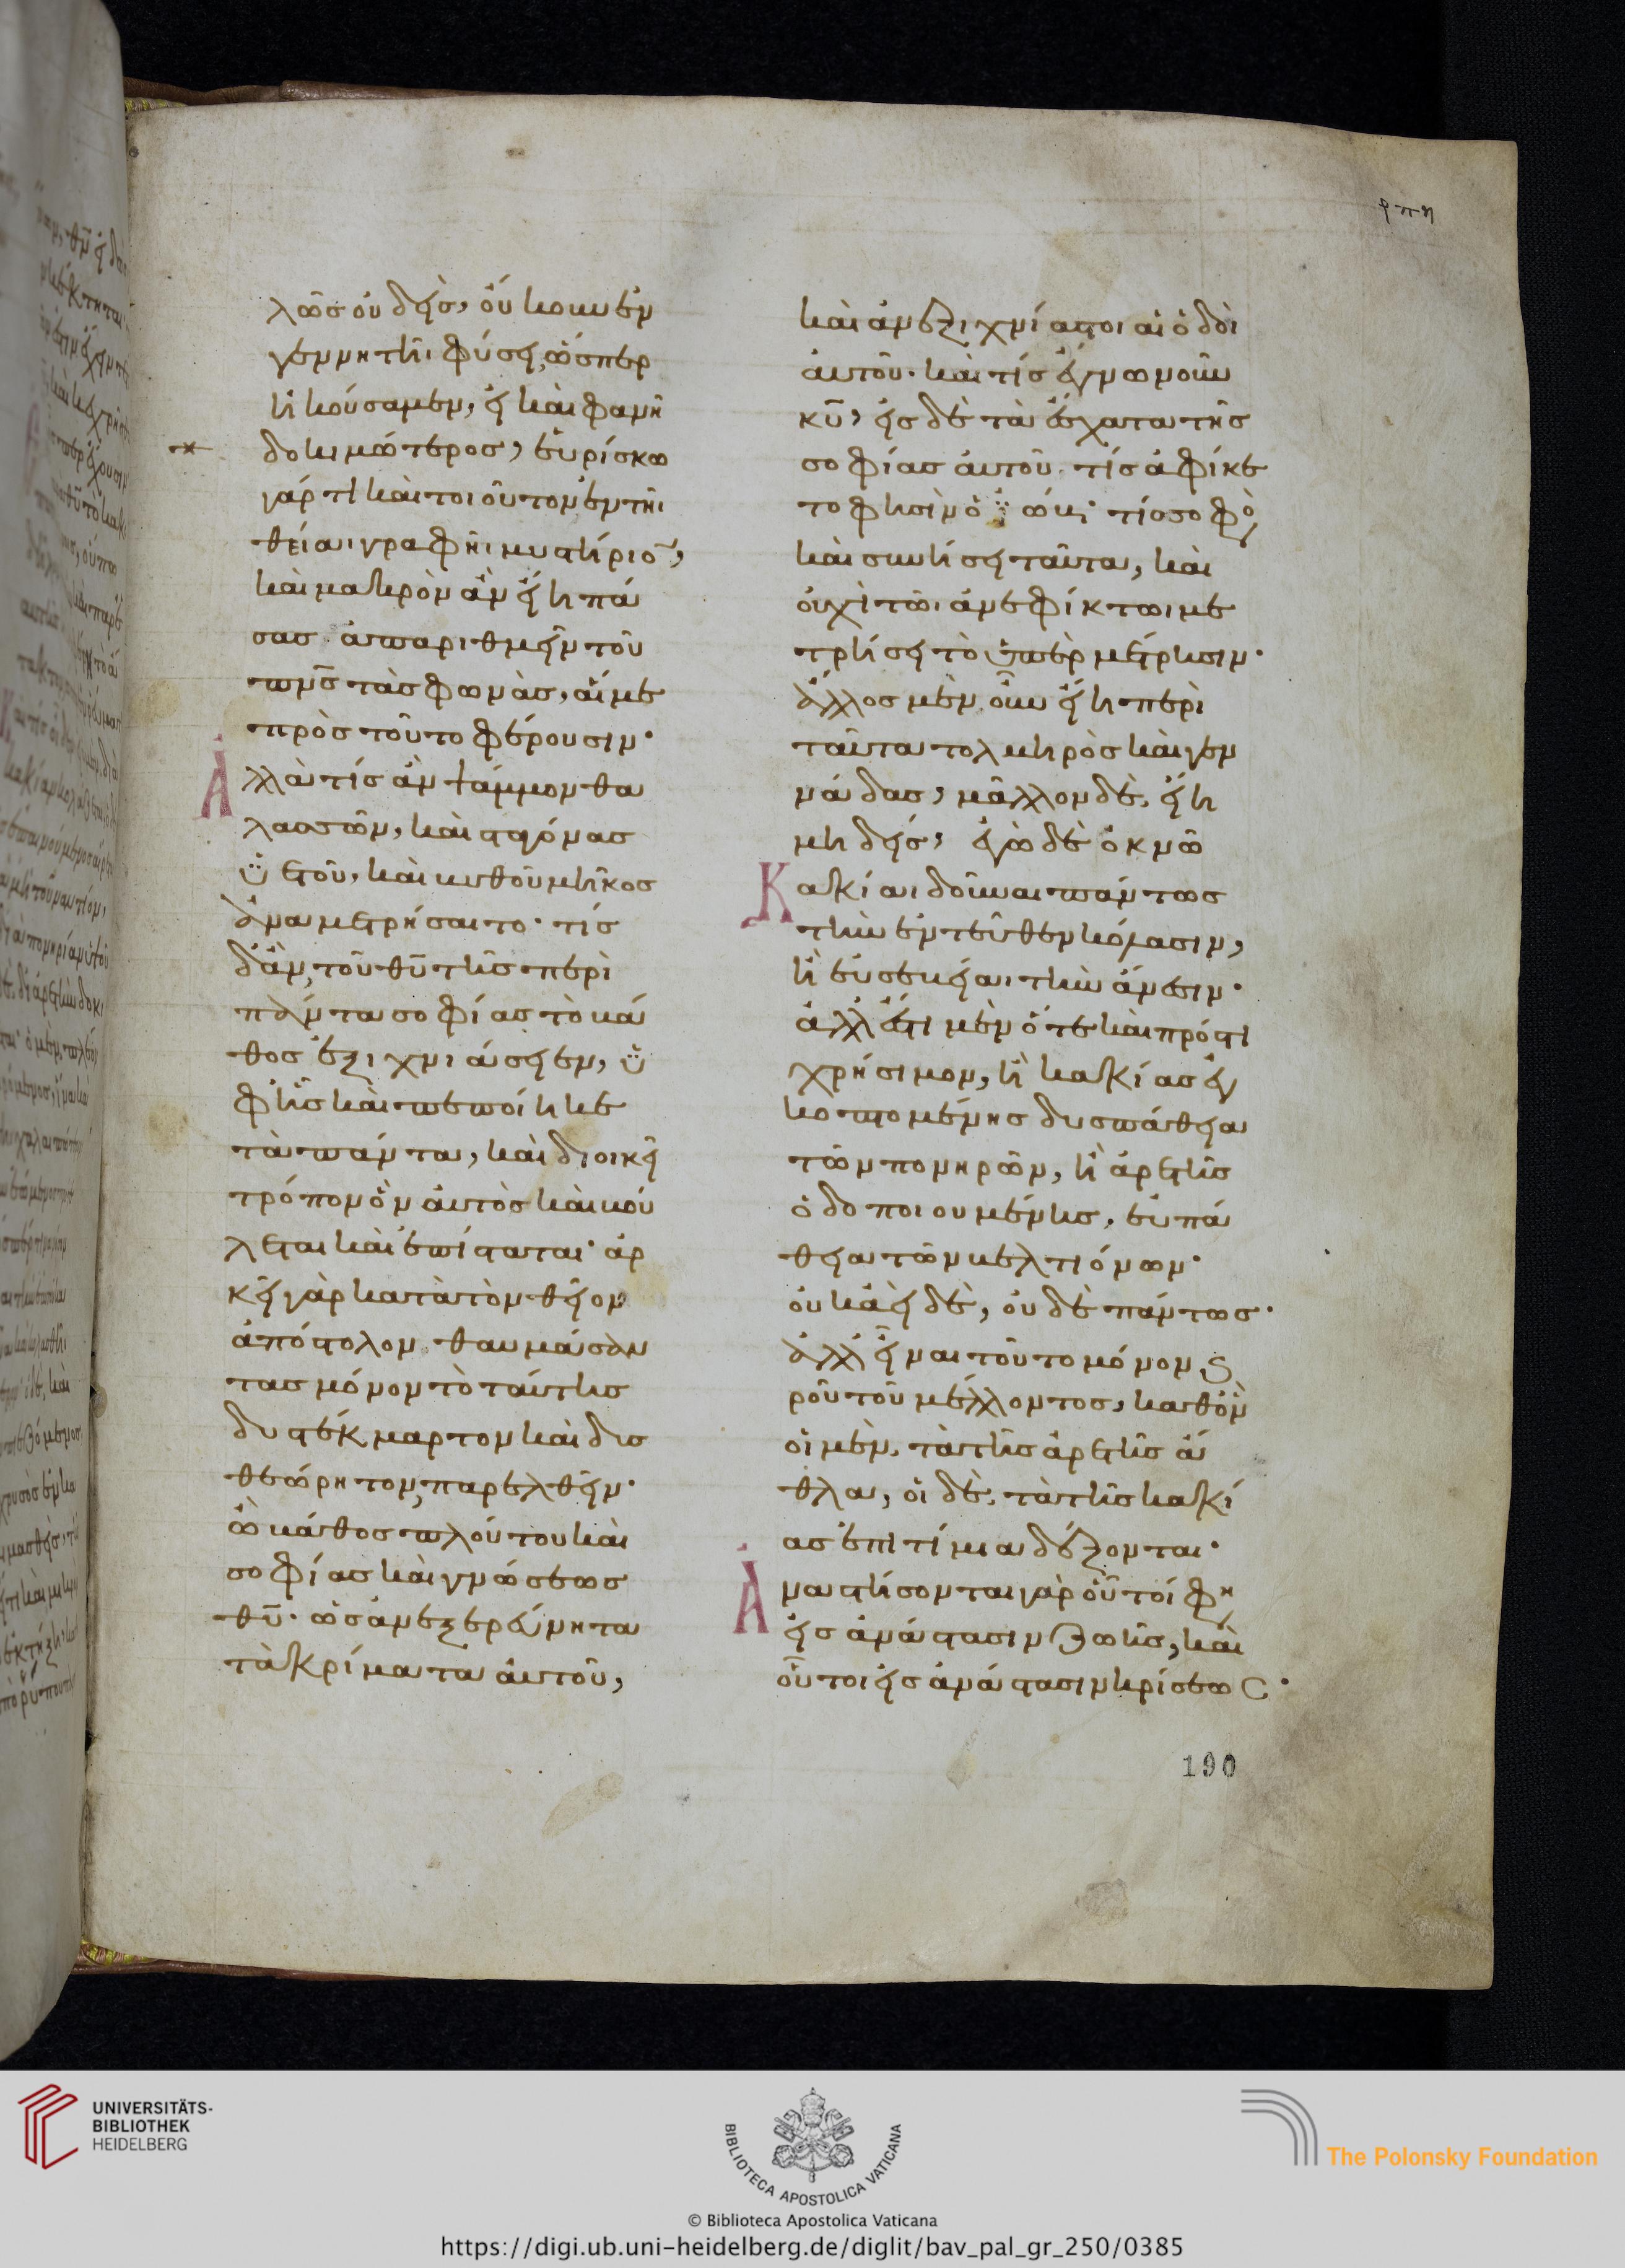 λῶς οὐδείς, οὔκουν ἐν
γεννητῆι φύσει, ὥσπερ
ἠκούσαμεν, εἰ καὶ φανῆ
δοκιμώτερος, εὑρίσκω
γάρ τι καὶ τοιοῦτον ἐν τῆι
θείαι γραφῆι μυστήριο̅,
καὶ μακρὸν ἂν εἴη πά
σας ἀπαριθμεῖν τοῦ
πν̅ς τὰς φωνὰς, αἵ με
πρὸς τοῦτο φέρουσιν·
Ἀλλὰ τίς ἂν ψάμμον θα
λασσῶν, καὶ σταγόνας
ὑετοῦ, καὶ βυθοῦ μῆκος
ἀναμετρήσαιτο· τίς
δ' ἂν, τοῦ θυ̅ τῆς περὶ
πάντα σοφίας τὸ βά
θος ἐξιχνιάσειεν, ὑ
φ' ἧς καὶ πεποίηκε
τὰ πάντα, καὶ διοικεῖ
τρόπον ὃν αὐτὸς καὶ βού
λεται καὶ ἐπίσταται· ἀρ
κεῖ γὰρ κατὰ τὸν θεῖον
ἀπόστολον θαυμάσαν
τας μόνον τὸ ταύτης
δυστέκμαρτον καὶ δυσ
θεώρητον, παρελθεῖν·
ὦ βάθος πλούτου καὶ
σοφίας καὶ γνώσεως
θυ̅· ὡς ἀνεξερεύνητα
τὰ κρίματα αὐτοῦ,
ϟπη
καὶ ἀνεξιχνίαστοι αἱ ὁδοὶ
αὐτοῦ· καὶ τίς ἔγνω νοῦν
κυ̅, εἰς δὲ τὰ ἔσχατα τῆς
σοφίας αὐτοῦ τίς ἀφίκε
το φησὶν ὁ ϊώβ; τίς σοφὸς
καὶ συνήσει ταῦτα, καὶ
οὐχὶ τῶι ἀνεφίκτωι με
τρήσει τὸ ὑπὲρ μέτρησιν·
ἄλλος μὲν οὖν εἴη περὶ
ταῦτα τολμηρὸς καὶ γεν
νάδας, μᾶλλον δὲ, εἴη
μηδείς, ἐγὼ δὲ ὀκνῶ
Κακίαι δοῦναι πάντως
τὴν ἐντεῦθεν κόλασιν,
ἢ εὐσεβείαι τὴν ἄνεσιν·
ἀλλ' ἔστι μὲν ὅτε καὶ πρός τι
χρήσιμον, ἢ κακίας ἐγ
κοπτομένης δυσπαθεία
τῶν πονηρῶν, ἢ ἀρετῆς
ὁδοποιουμένης, εὐπα
θεία τῶν βελτιόνων·
οὐκ ἀεὶ δὲ, οὐδὲ πάντως·
ἀλλ' εἶναι τοῦτο μόνου και
ροῦ τοῦ μέλλοντος, καθ' ὃν
οἱ μὲν, τὰ τῆς ἀρετῆς ἆ
θλα, οἱ δὲ, τὰ τῆς κακί
ας ἐπιτίμια δέξονται·
Ἀναστήσονται γὰρ οὗτοί φη
εἰς ἀνάστασιν ζωῆς, καὶ
οὗτοι εἰς ἀνάστασιν κρίσεως·
190
UNIVERSITÄTS-
BIBLIOTHEK
HEIDELBERG
BIBLIOTECA APOSTOLICA VATICANA
The Polonsky Foundation
© Biblioteca Apostolica Vaticana
https://digi.ub.uni-heidelberg.de/diglit/bav_pal_gr_250/0385